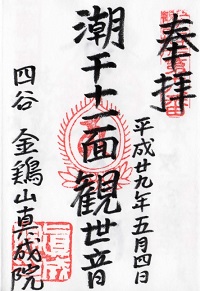 奉拝
平成廿九年五月四日
潮干十一面観世音
四谷 金鶏山真成院